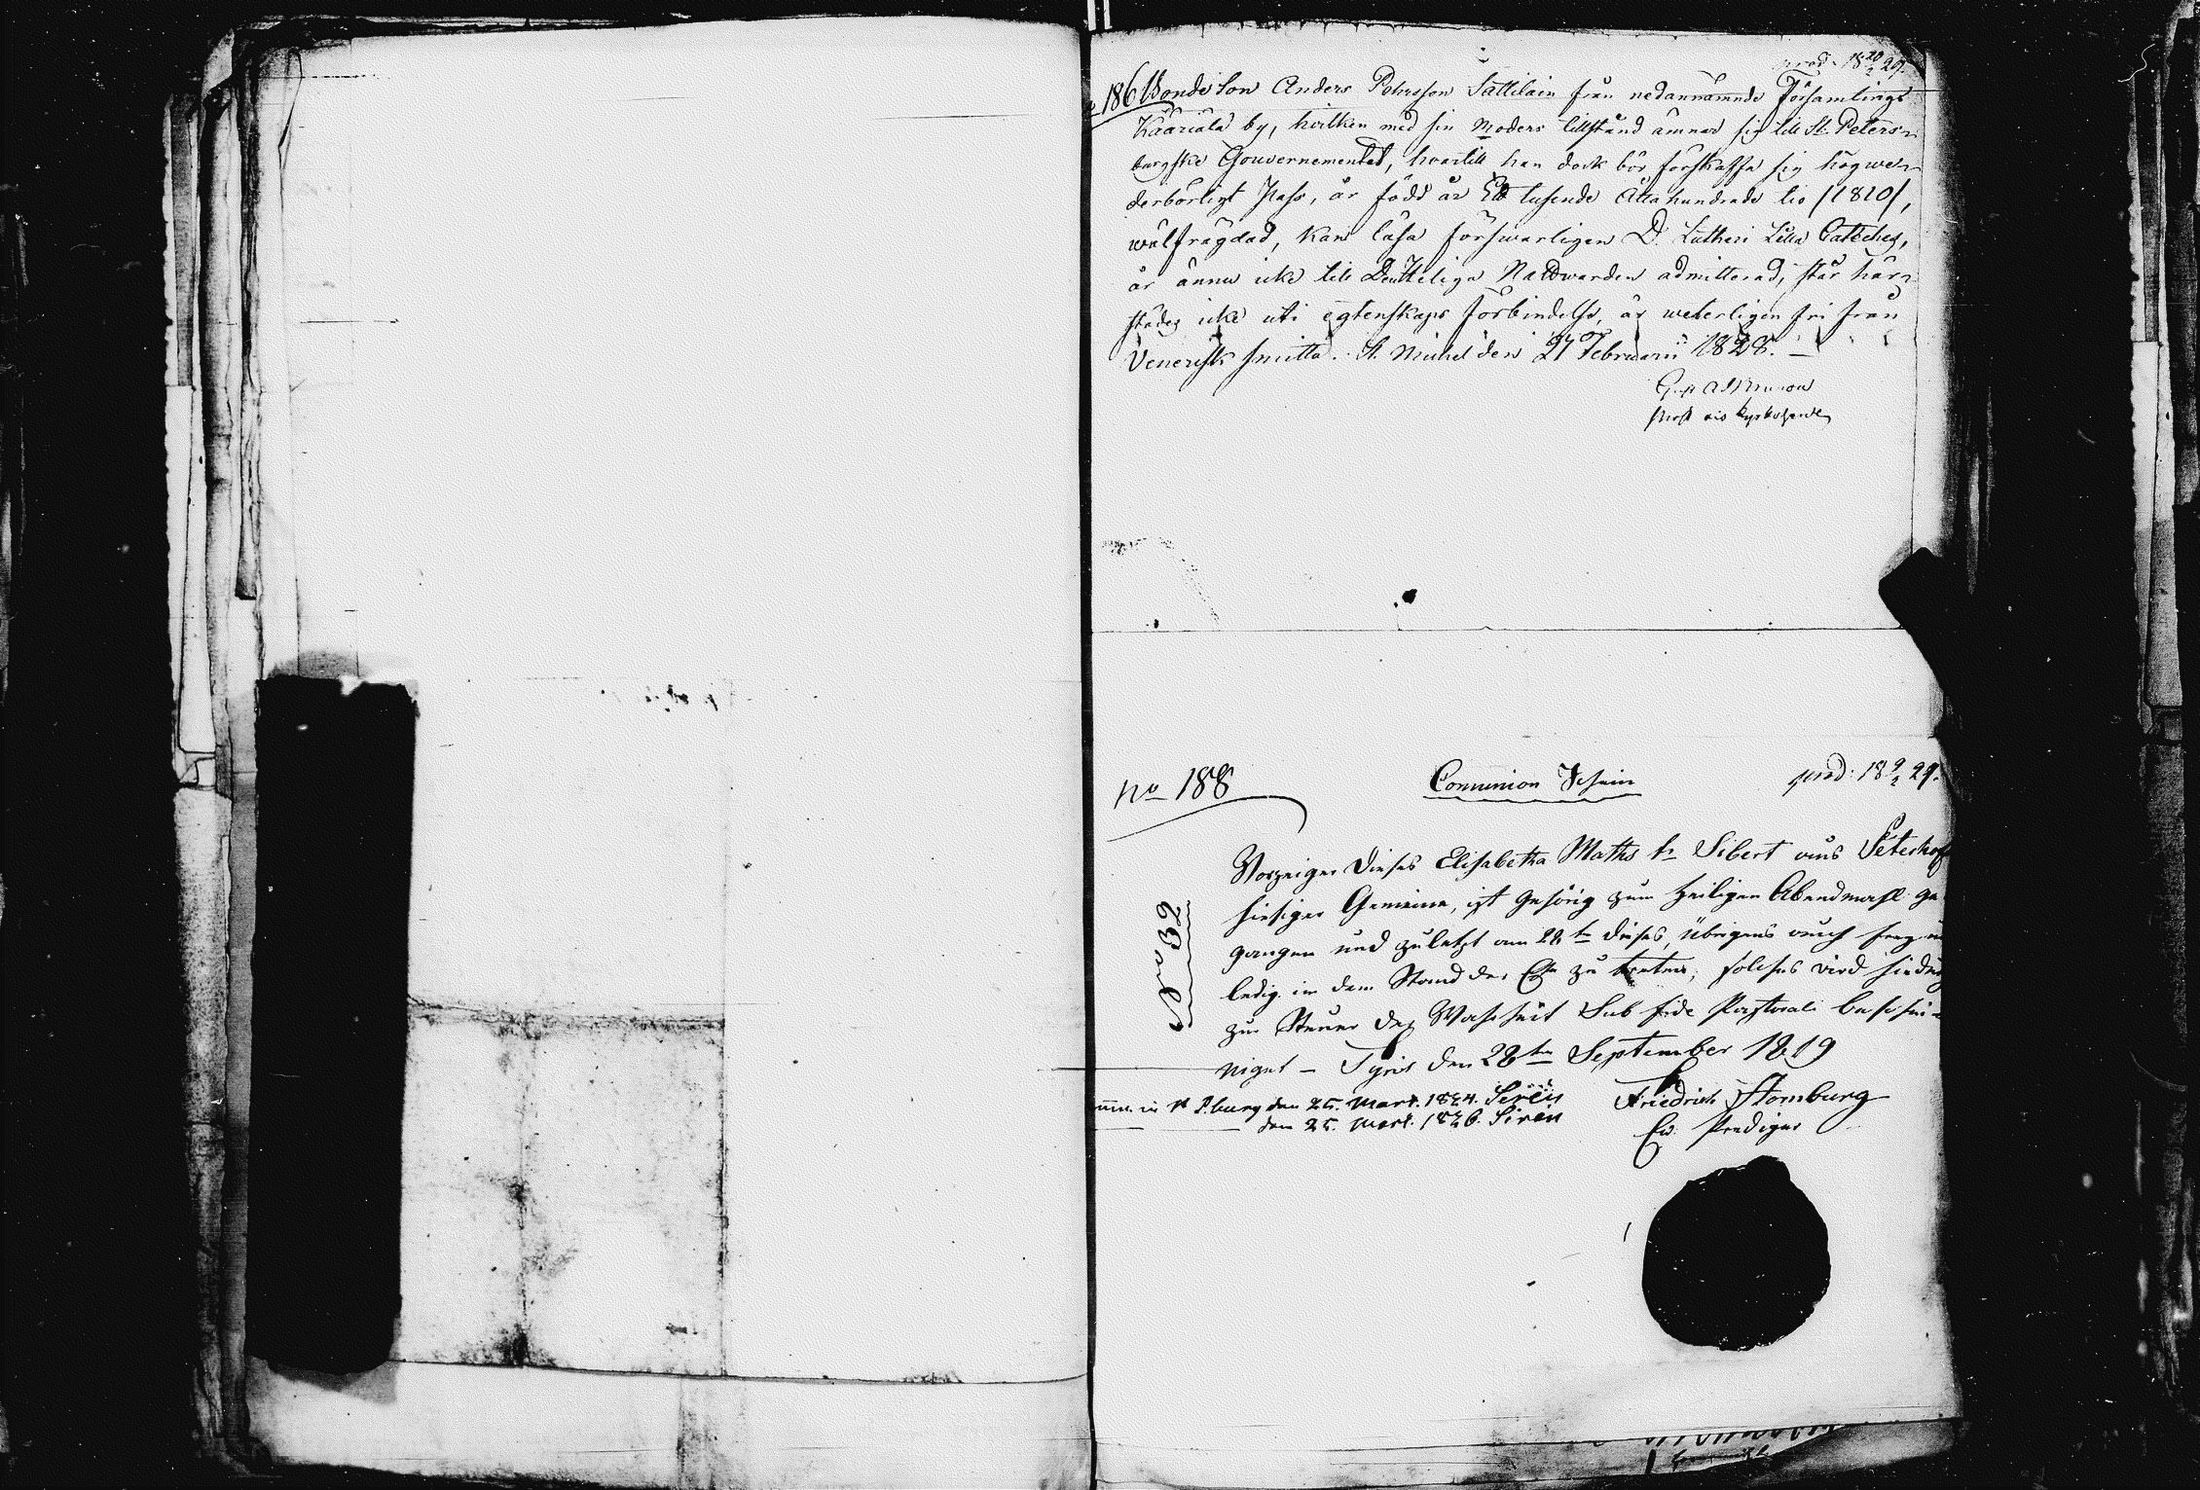 prod. 18 20/2 29.
186 Bondeson Anders Pehrsson Sattilain från nedannämnde Församlings
Kääriälä by, hvilken med sin Moders tillstånd ämnar sig till St. Peters-
burgske Gouvernementet, hvartill han dock bör förskaffa sig
derbörligt Pass, är född år Ett tusende Åtta hundrade tio /1810/,
wälfrägdad, kan läsa försvarligen D. Lutheri Lilla Cateches,
är ännu icke till Nattwarden admitterad, står här-
städes icke uti egtenskaps förbindelse, är weterligen fri från
Venerisk smitta. St. Michel den 27 Februarii 1828.
No 188
Communion Schein
prod. 18 9/2 29.
Vorzeiger dieses Elisabetha Maths tr Sibert aus Peterhof
hiesiger Gemeine, ist gehörig zum heiligen Abendmahl ge
gangen und zuletzt am 28 tn dieses, übrigens auch
ledig in dem Stand der Ehe zu treten; solches wird
zur Steuer der Wahrheit Sub fide Pastorali beschei-
niget - Tyris den 28ten September 1819
No 32
in St P.burg den 25. Mart. 1824. Sirén
den 25. Mart. 1826. Sirén
Friedrich Hornburg
Ev. Prediger